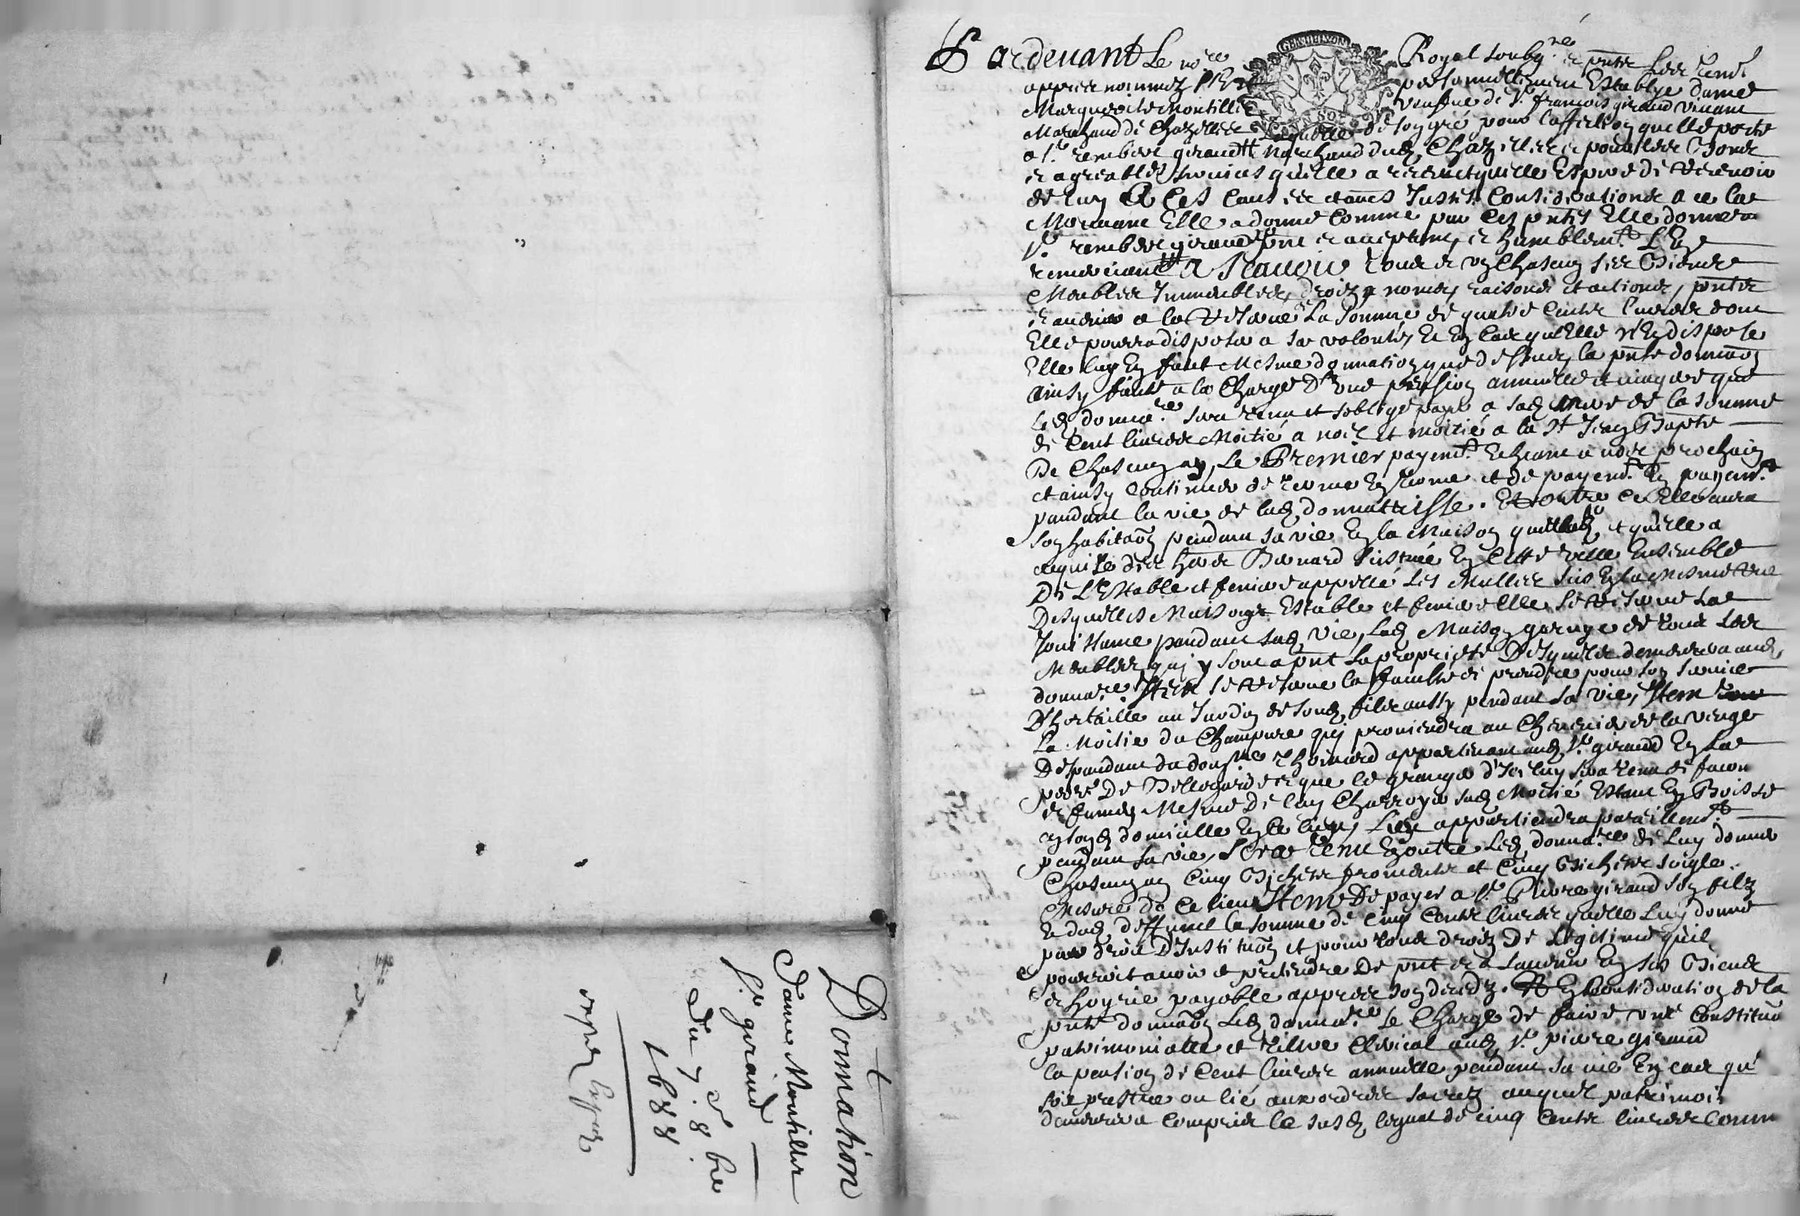 Donnation
dame Montillier
Sr giraud
Du 7. 8bre
1688
Pardevant Le nore Royal soubsné et pnts
apprès nommez personnellement Establye dame
Marguerite Montillier veufve de Sr françois giraud vivant
Marchand de Chazelles de son gré pour l'affection quelle porte
a Sr rembert giraud Marchand dud Chazelles et pour les bons
et agreables services quelle a receu et quelle Espere de recevoir
de luy A Ces Causes et autres Justes Considerations a ce la
Mouvant Elle a donné Comme par Ces pnts Elle donne a
Sr rembert giraud pnt et acceptant, et humblemt L'En
remerciant A Scavoir tous et un Chascung ses Biens
Meubles Immeubles, droicts noms, raisons et actions, pnts
et advenir a la reserve La somme de quatre Cents livres dont
Elle pourra disposer a sa volonté, Et En Cas quElle n'En dispose
Elle luy En fait Mesme donnation que dessus, la pnte donnaon
ainsy faite a la Charge D'une pension annuelle et viagere que
Led donnare sera tenu et sobligé payer a sad mere de la somme
de Cent livres Moitié a noel Et moitié a la St Jean Baptte
De Chascung an, Le Premier payemt Echeant a noel prochain
et ainsy Continuer de terme En terme et de payemt En payemt
pandant la vie de lad donnatrisse. Et outre Ce Elle aura
son habitaon pendant sa vie En la Maison quelle a
acquise des hers Bernard scituée En Cette ville Ensemble
De L'Estable et feniere appellé Les Mulliers sis En la Mesme rue
Desquelles Maison Estable et feniere Elle se reserve La
Jouissance pandant sad vie, Lad Maison garnye de tous Les
Meubles quj y sont a pnt la proprieté Desquels demeurera aud
donnare. Item se reserve la faculté de prendre pour son service
D'hortaille au Jardin de sond fils aussy pendant sa vie, Item
La Moitié du Chanvre quj proviendra au Chenevier de la verge
Despandant du domaine appartenant aud Sr giraud En La
parre De Bellegarde et que le granger d'Icelluy sera tenu de facon
et fumer Mesme De luy Charroyer sad Moitié Estant En Boisse
en son domicille En Ce lieu, appartiendra pareillemt
pendant sa vie, Sera tenu En outre Led donnare de Luy donner
Chascung an Cinq Bichets froment et Cinq Bichets soigle
Mesure de Ce lieu Item De payer a Sr Pierre giraud son fils
Et dud deffunct la somme de Cinq Cents livres quelle Luy donne
par droit D'Institution et pour tous droits De legitime quil
pourroit avoir et pretendre De pnt et a Ladvenir En ses Biens
et hoyrie payable apprès son deceds. Et En Consideration de la
pnte donnaon Led donnare Le Charge de faire une Constituon
patrimonialle et tiltre Clerical aud Sr pierre giraud
la pension de Cent livres annuelle pendant sa vie En cas qu'il
soit prestre ou lié aux ordres sacrez auquel patrimoine
demeurera Compris le susd legat de Cinq Cents livres Comm